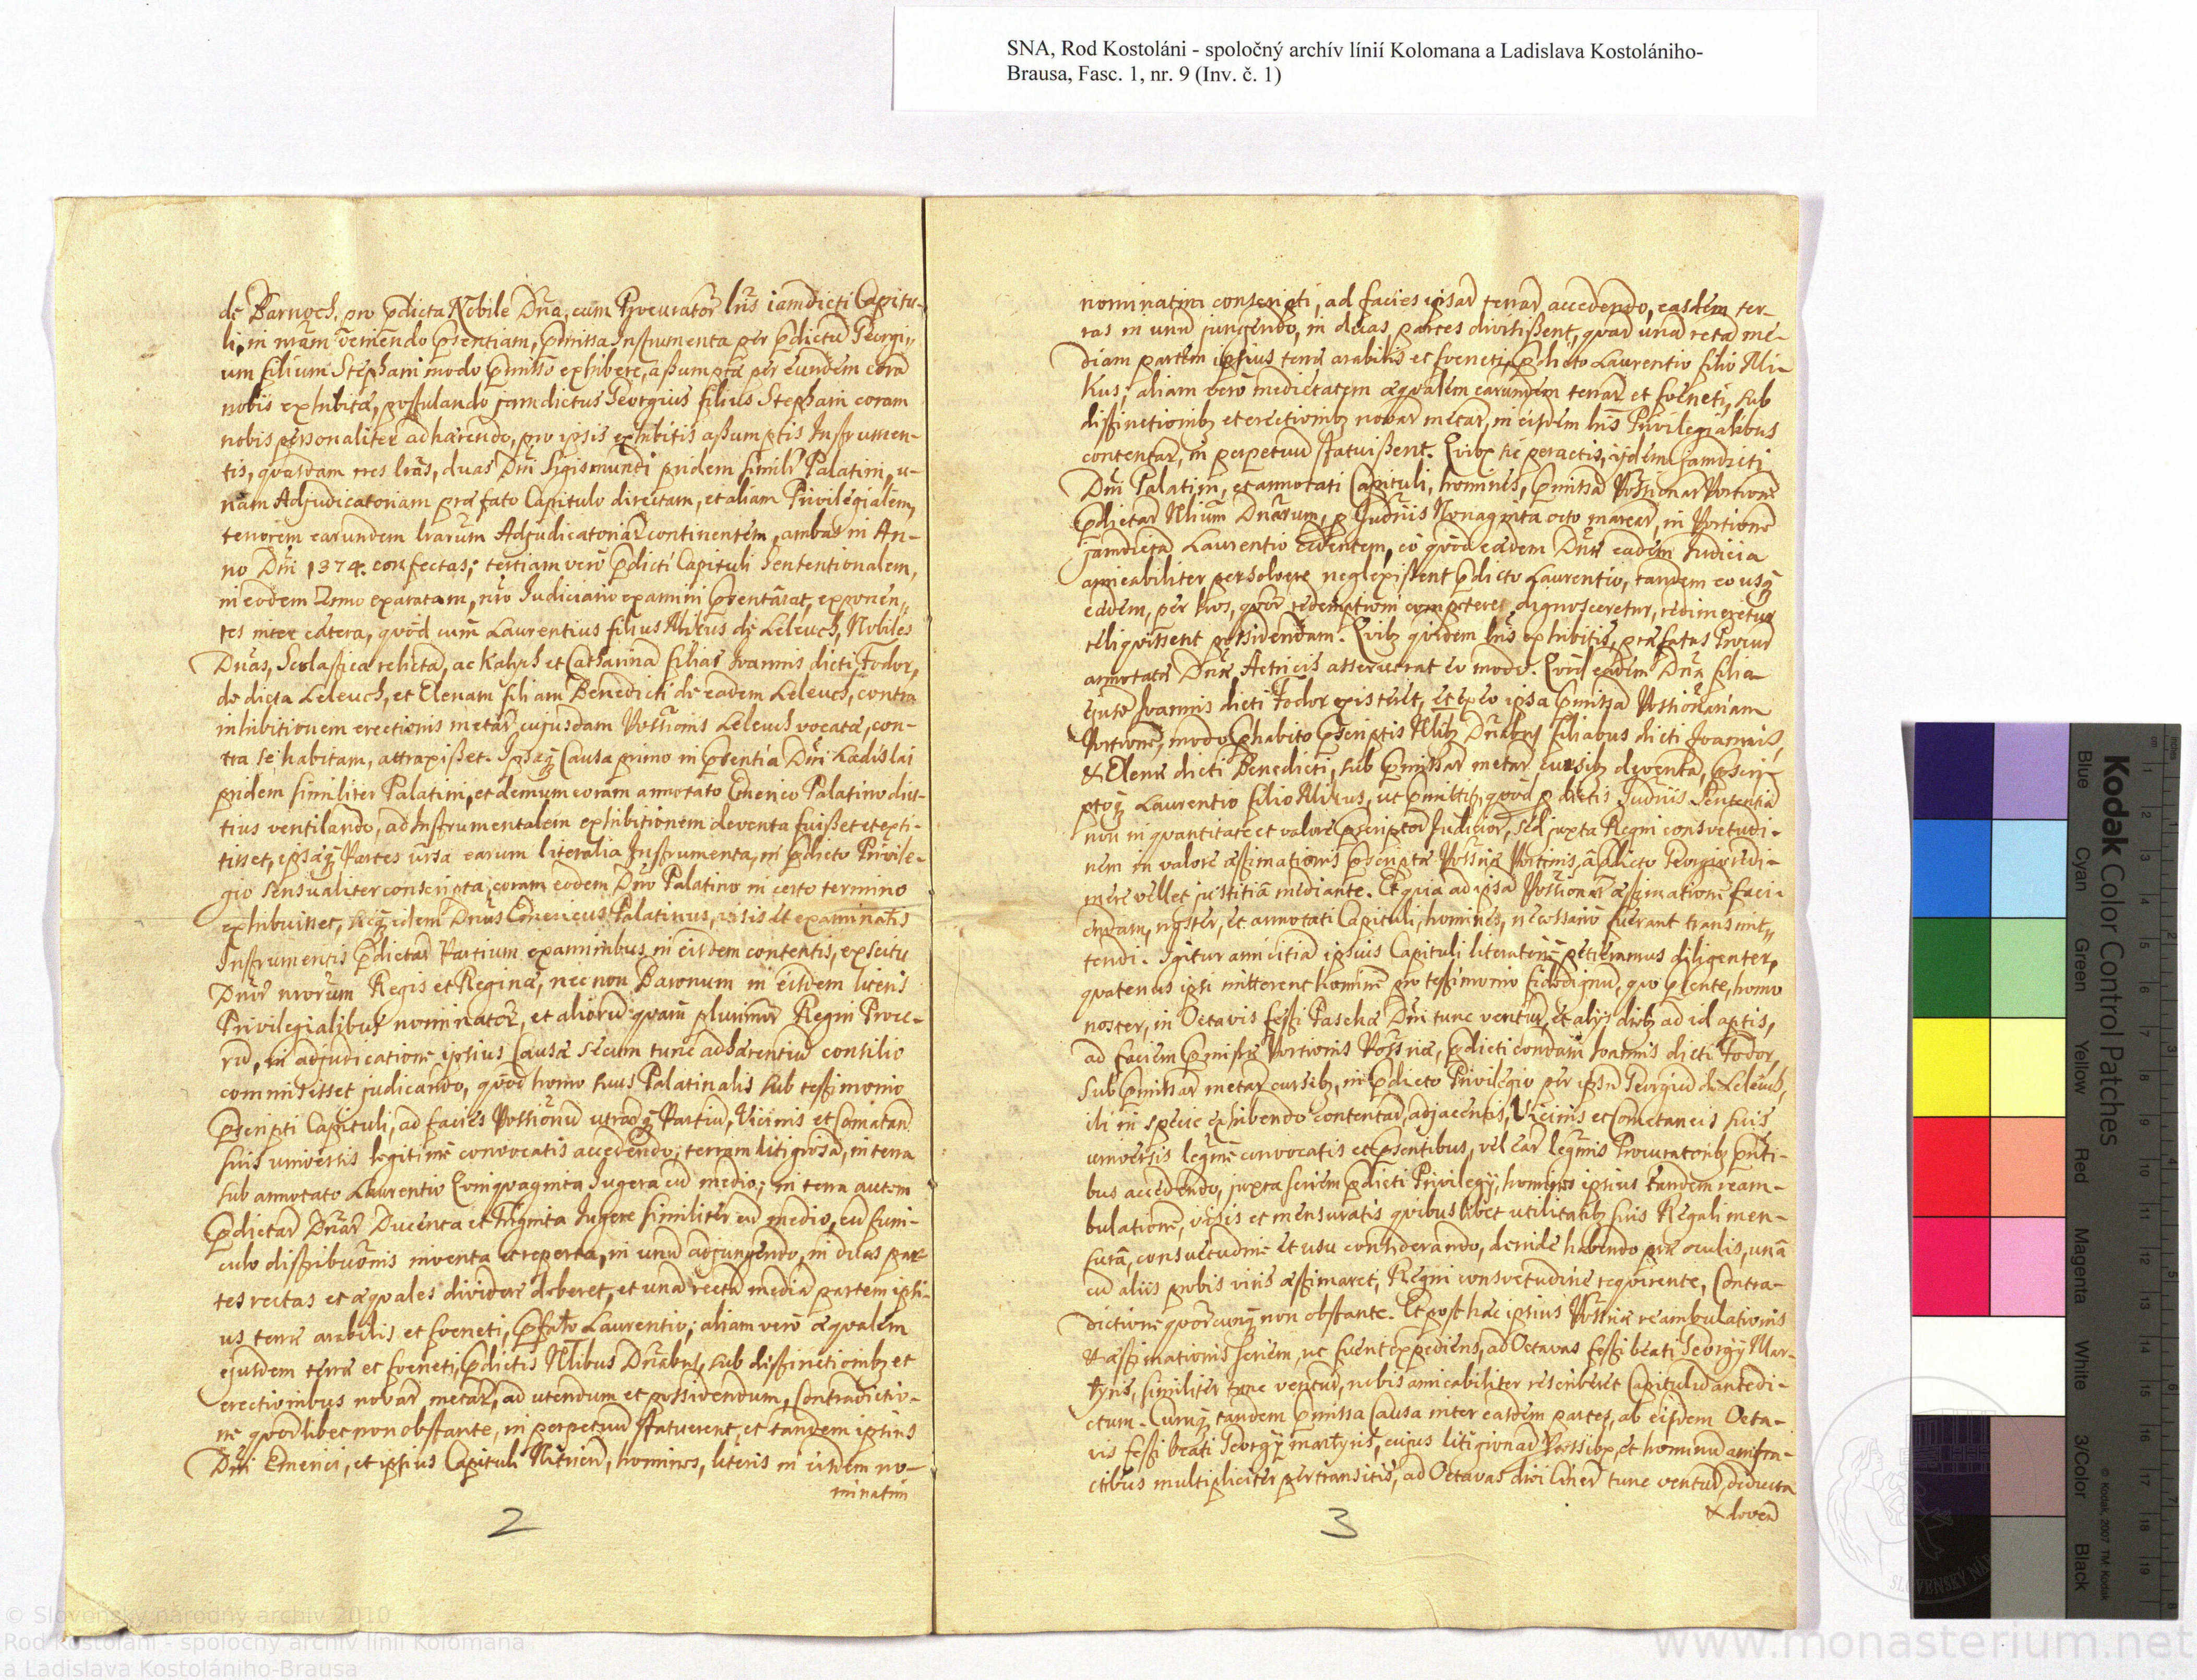 SNA, Rod Kostoláni - spoločný archív línií Kolomana a Ladislava Kostolániho-
Brausa, Fasc. 1, nr. 9 (Inv. č. 1)
de Barnoch, pro pdicta Nobile Dna, cum Procurator lris iamdicti Capitu-
li, in nram veniendo psentiam, pmissa Instrumenta per pdictu Georgi-
um filium Stephani modo pmisso exhibere, assumpta per eundem cora
nobis exhibita, postulando jamdictus Georgius filius Stephani coram
nobis personaliter adhaerendo, pro ipsis exhibitis assumptis Instrumen-
tis, quasdam tres lras, duas Dni Sigismundi pridem simili Palatini, u-
nam Adjudicatoriam prae fato Capitulo directam, et aliam Privilegialem,
tenorem earundem lrarum Adjudicatoriar continentem, ambas in An-
no Dni 1374. confectas; tertiam vero pdicti Capituli Sententionalem,
in eodem Anno exaratam, nro Judiciario examini psentarat, exponen-
tes inter caetera, quod cum Laurentius filius Mikus de Leleuch, Nobiles
Dnas, Scolastica relicta, ac Kalych et Catharina filias Joannis dicti Fodor,
de dicta Leleuch, et Elenam filiam Benedicti de eadem Leleuch, contra
inhibitionem erectionis metar cujusdam Possionis Leleuch vocata, con-
tra se habitam, attraxisset. Ipsaq Causa primo in psentia Dni Ladislai
pridem similiter Palatini, et demum coram annotato Emerico Palatino diu-
tius ventilando, ad Instrumentalem exhibitionem deventa fuisset et exti-
tisset, ipsaq Partes ursa earum literalia Instrumenta, in pdicto Privile-
gio sensualiter conscripta, coram eodem Dno Palatino in certo termino
exhibuisset, idem Dnus Emericus Palatinus, visis et examinatis
Instrumentis pdictar Partium examinibus in eisdem contentis, ex scitu
Dnor nrorum Regis et Regina, nec non Baronum in eisdem literis
Privilegialibus nominator, et aliorum quam plurimor Regni Proce-
ru, in adjudicatione ipsius Causa secum tunc adhaerentiu consilio
commisisset judicando, quod homo suus Palatinalis sub testimonio
pscripti Capituli, ad facies Possionu utraruq Partiu, Vicinis et Cometan
suis universis legitime convocatis accedendo; terram litigiosa, in terra
sub annotato Laurentio Quinquaginta Jugera cu medio; in terra autem
pdictar Dnar Ducenta et Triginta Jugere similiter cu medio, cu funi-
culo distributionis inventa et reperta, in unu adjungendo, in duas par
tes rectas et aequales dividere deberet, et una recta media partem ipsi-
us terra arabilis et foeneti, pfato Laurentio; aliam vero aequalem
ejusdem terra et foeneti, pdictis Nlibus Dnabus, sub distinctionib et
erectionibus novar metar, ad utendum et possidendum, Contradictio-
ne quorlibet non obstante, in perpetuu statuerent, et tandem ipsius
Dni Emerici, et ipsius Capituli Nitrien, hominos, literis in eisdem no-
minatim
2
nominatim conscripti, ad facies ipsar terrar accedendo, easdem ter-
ras in unu jungendo, in duas partes divisissent, quar una recta me-
diam partem ipsius terra arabilis et foeneti pdicto Laurentio filio Mi-
kus; aliam vero medietatem aequalem earundem terrar et foeneti, sub
distinctionib et erectionib novar metar, in eisdem lris Privilegialibus
contentar, in perpetuu statuissent. Quibus sic peractis, ijdem jamdicti
Dni Palatini, et annotati Capituli, homines, pmissa Possionar Portione
pdictar Nlium Dnarum, p Judiis Nonaginta octo marcar, in Portione
jamdicta Laurentio cedentem, eo quod eadem Dna eadem Judicia
amicabiliter persolvere neglexissent pdicto Laurentio, tandem eo usq
eadem, per hos, quor redemptioni competeret dignosceretur, redimeretur
reliquissent possidendam. Quib quidem lris exhibitis, praefatus Procur
annotata Dna Actricis asseruerat eo modo. Quod eadem Dna filia
Joannis dicti Fodor extitit, et ex eo ipsa pmissa Possionariam
Portione, modo phabito pscriptis Nlib Dnabus filiabus dicti Joannis,
& Elena dicti Benedicti, sub pmissar metar cursib deventa, pscri-
ptoq Laurentio filio Mikus, ut pmittit, quod p dictis Judiis Sententia
non in quantitate et valore pscriptor Judicior, sed juxta Regni consvetudi-
nem in valore aestimationis pscripta Possria Portionis, a pdicto Georgio redi-
mere vellet justitia mediante. Et quia ad ipsa Possionar aestimatione faci-
endam, noster, et annotati Capituli, homines, necessario fuerant transmit-
tendi. Igitur amicitia ipsius Capituli literatorie petieramus diligenter,
quatenus ipsi mitterent homine pro testimonio fidedignu, quo psente, homo
noster, in Octavis festi Pascha Dni tunc ventur, et alys dieb ad id aptis,
ad faciem pmissa Portionis Possria, pdicti condam Joannis dicti Fodor,
sub pmissar metar cursib, in pdicto Privilegio per ipsu Georgiu de Leleuch,
ibi in specie exhibendo contentar, adjacentis, Vicinis et Cometaneis suis
universis legitime convocatis et psentibus, vel ear legitimis Procuratorib pnti-
bus accedendo, juxta seriem pdicti Privilegy, hominos ipsius tandem ream-
bulatione, visis et mensuratis quibuslibet utilitatib suis Regali men-
sura, consuetudine et usu considerando, deinde habendo prae oculis, una
cu aliis probis viris aestimaret, Regni consvetudine requirente, Contra-
dictione quorcunq non obstante. Et post haec ipsius Possria reambulationis
& aestimationis seriem, ut fuerit expediens, ad Octavas festi beati Georgy Mar-
tyris, similiter tunc ventur, nobis amicabiliter rescriberet Capitulu antedi-
ctum. Cumq tandem pmissa Causa inter easdem partes, ab eisdem Octa-
vis festi beati Georgy martyris, cujus litigionar Processib, et hominu amfra-
ctibus multipliciter pertransitis, ad Octavas diei Ciner tunc ventur, deducta
& deven
3
Kodak Color Control Patches
Blue
Cyan
Green
Yellow
Red
Magenta
White
3/Color
Black
© Kodak, 2007 TM: Kodak
© Slovenský národný archív 2010
Rod Kostoláni - spoločný archív línií Kolomana
a Ladislava Kostolániho-Brausa
www.monasterium.net